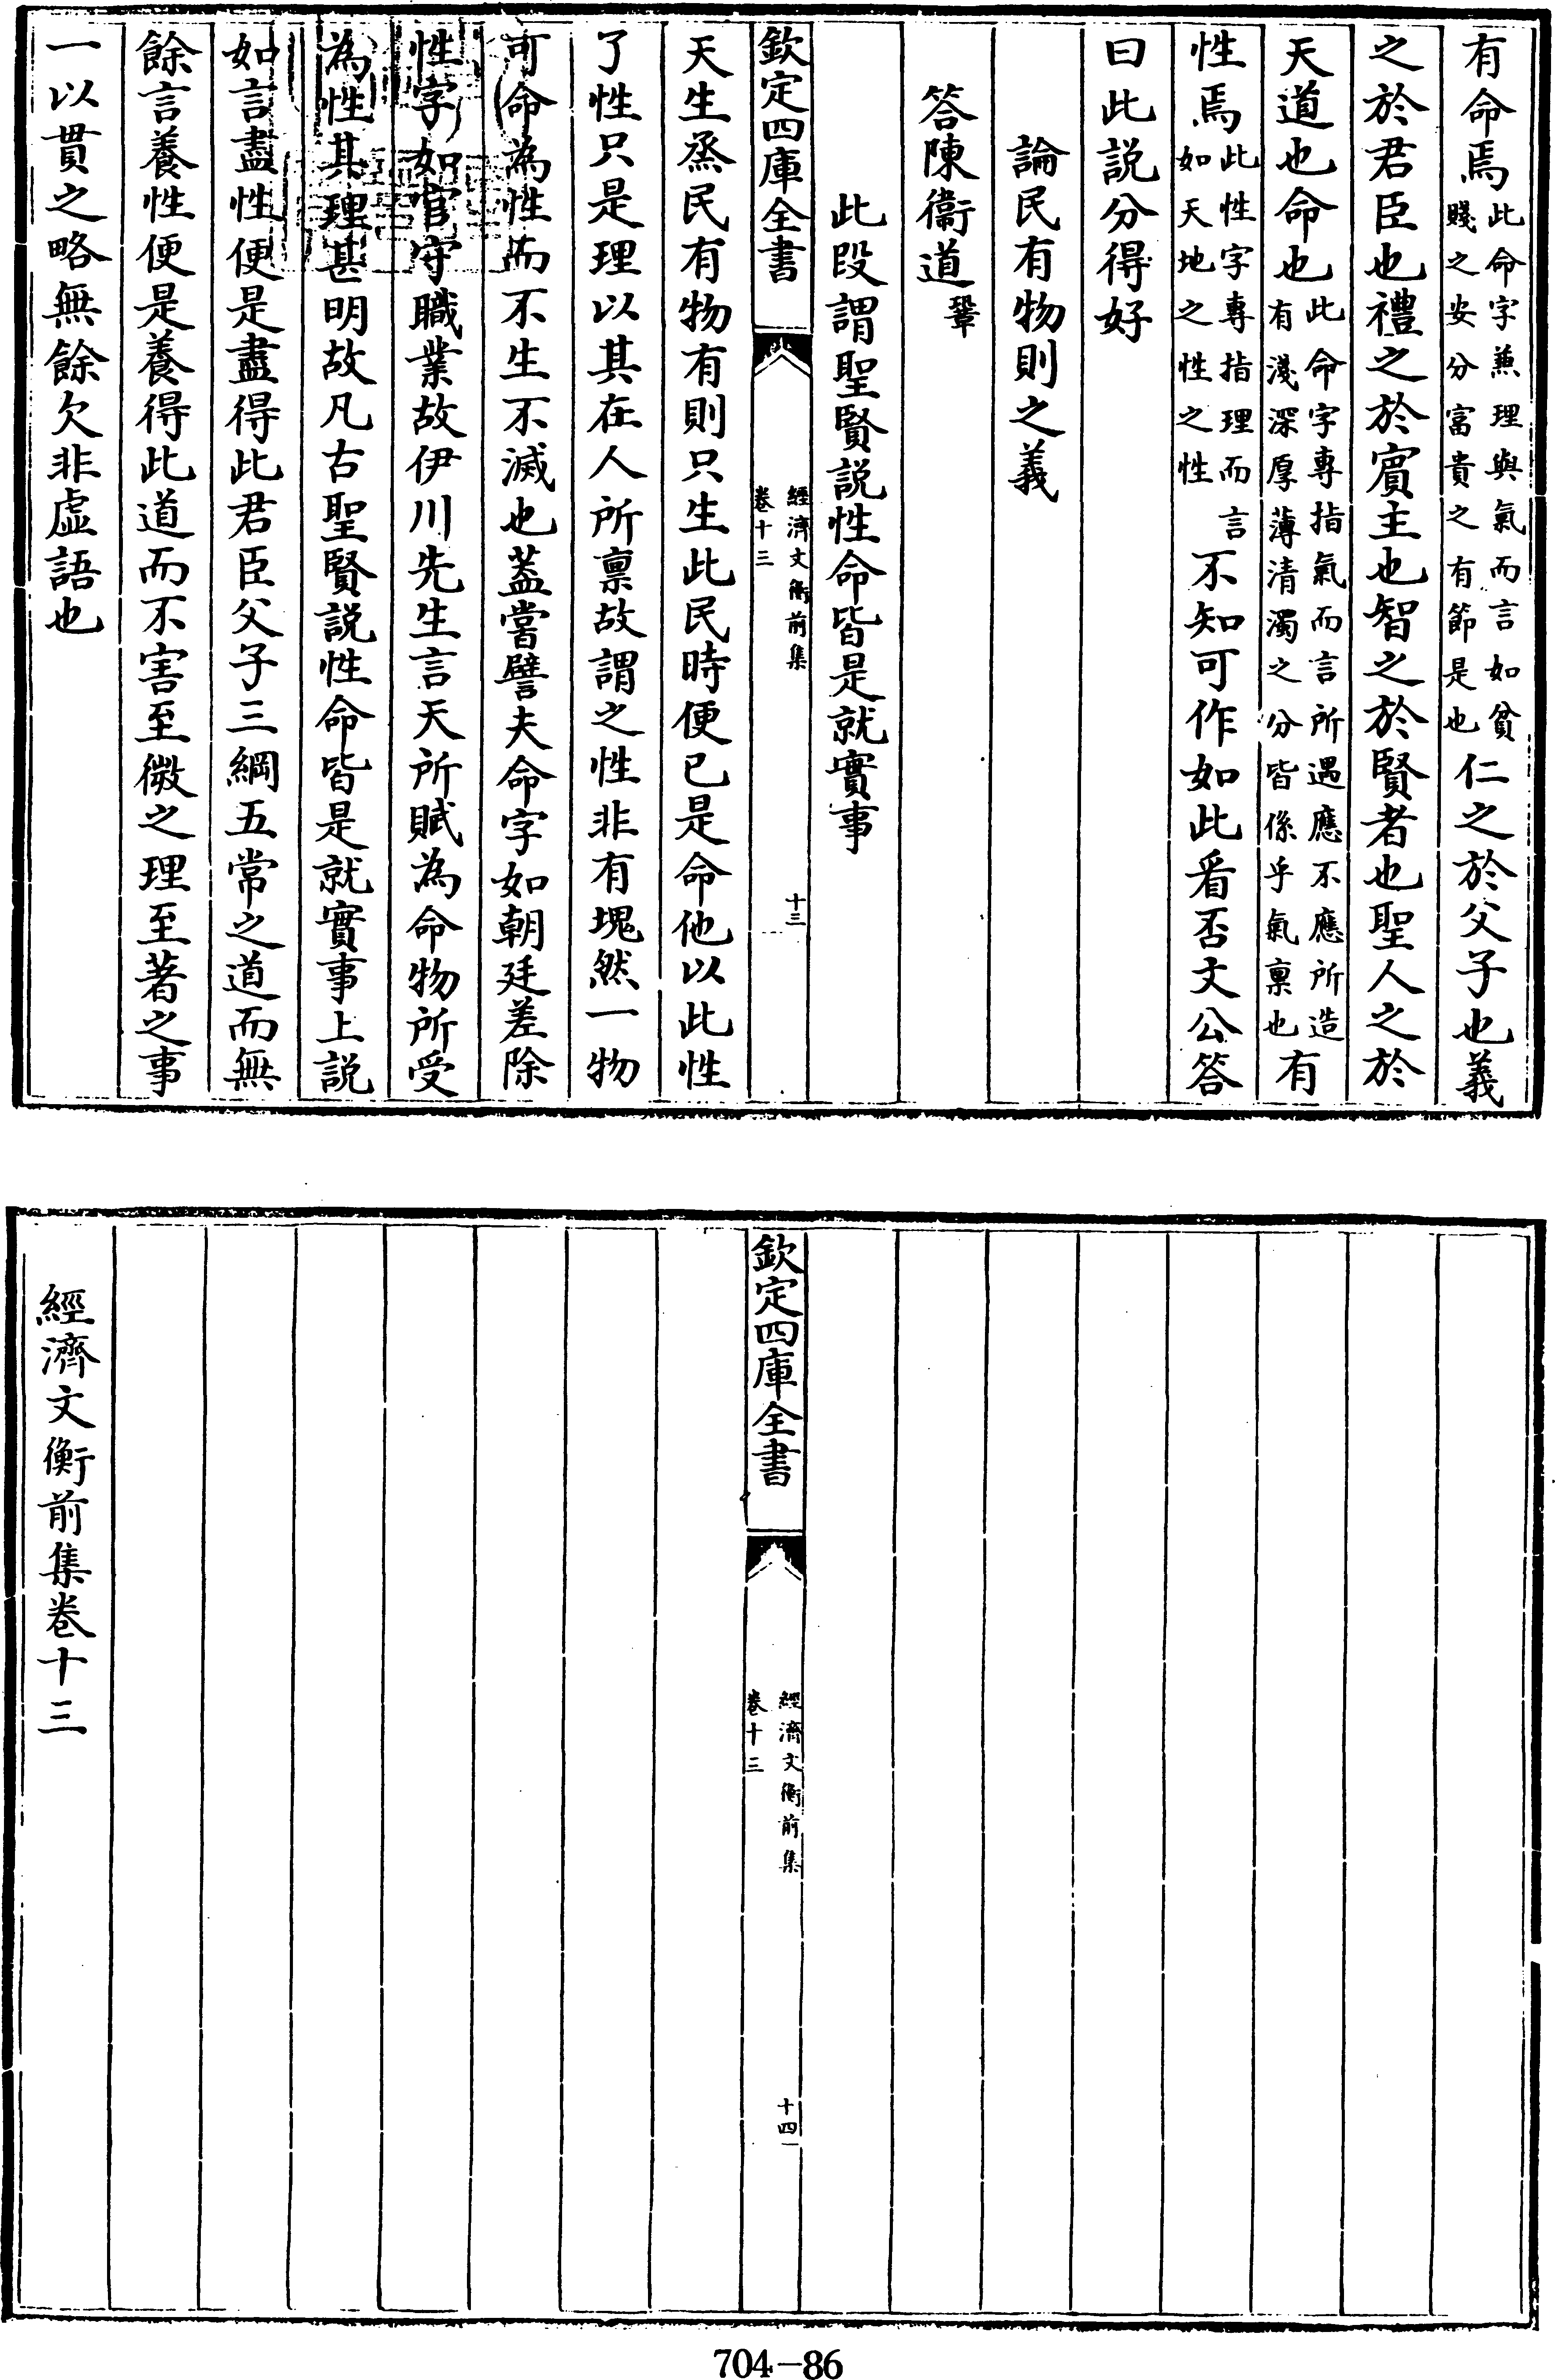 有命焉此命字兼理與氣而言如貧賤之安分富貴之有節是也仁之於父子也義
之於君臣也禮之於賓主也智之於賢者也聖人之於
天道也命也此命字專指氣而言所遇應不應所造有淺深厚薄清濁之分皆係乎氣稟也有
性焉此性字專指理而言如天地之性之性不知可作如此看否文公答
曰此説分得好
論民有物則之義
答陳衞道鞏
此段謂聖賢説性命皆是就實事
欽定四庫全書
經濟文衡前集
卷十三
十三
天生烝民有物有則只生此民時便已是命他以此性
了性只是理以其在人所禀故謂之性非有塊然一物
可命為性而不生不滅也蓋嘗譬夫命字如朝廷差除
性字如官守職業故伊川先生言天所賦為命物所受
為性其理甚明故凡古聖賢説性命皆是就實事上説
如言盡性便是盡得此君臣父子三綱五常之道而無
餘言養性便是養得此道而不害至微之理至著之事
一以貫之略無餘欠非虛語也
欽定四庫全書
經濟文衡前集
卷十三
十四
經濟文衡前集卷十三
704-86